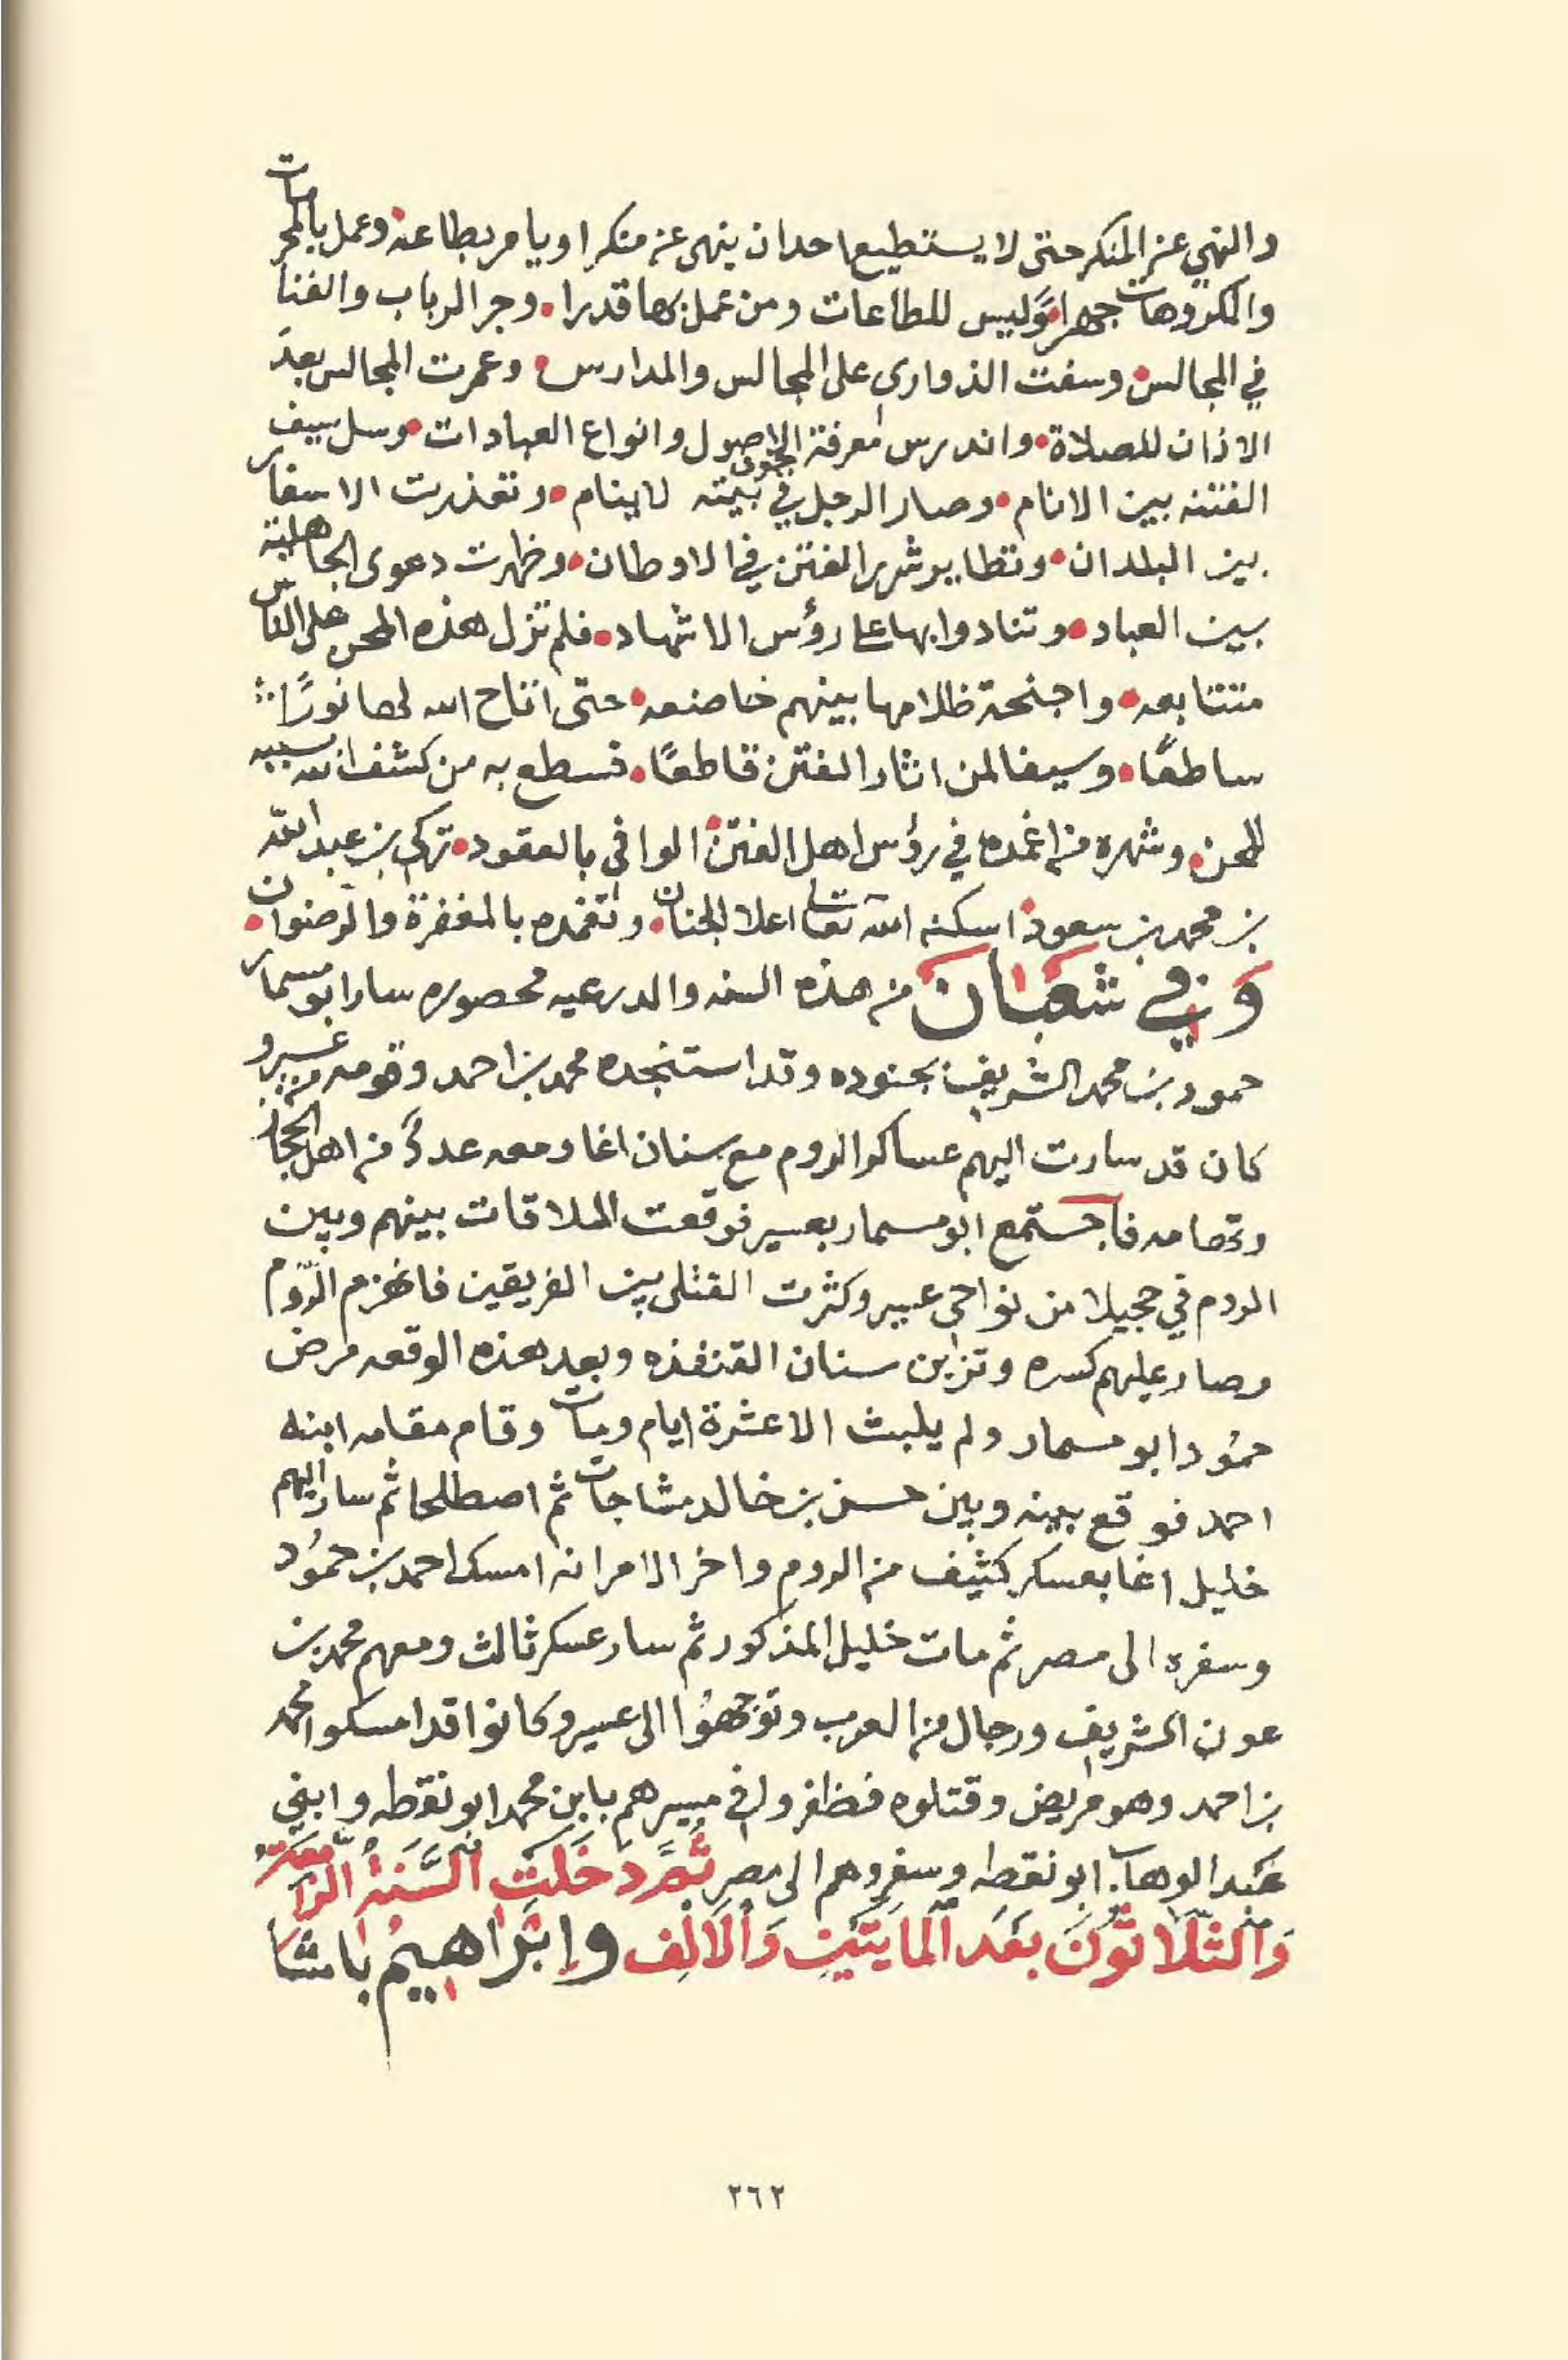 والنهي عن المنكر حتى لا يستطيع احدان ينهى عن منكرا ويامر بطاعة وعمل بالمحرمات
والمكروهات جهرا وليس للطاعات ومن عمل بها قدرا وجر الرباب والغنا
في المجالس وسفت الذواري على المجالس والمدارس وعمرت المجالس بعد
الاذان للصلاة واندرس معرفة الاصول وانواع العبادات وسل سيف
الفتنه بين الانام وصار الرجل في جوف بيته لا ينام وتعذرت الاسفار
بين البلدان وتطاير شرر الفتن في الاوطان وظهرت دعوى الجاهلية
بين العباد وتنادوا بها على رؤس الاشهاد فلم تزل هذه المحن على الناس
متتابعه واجنحة ظلامها بينهم خاضعه حتى اتاح الله لها نورًا
ساطعًا وسيفا لمن اثار الفتن قاطعًا فسطع به من كشف الله بسببه
المحن وشهره من اغمده في رؤس اهل الفتن الوافي بالعقود تركي بن عبد الله
بن محمد بن سعود اسكنه الله تعالى اعلا الجنان وتغمده بالمغفرة والرضوان
وفي شعبان من هذه السنه والدرعيه محصوره سار ابو مسمار
حمود بن محمد الشريف بجنوده وقد استنجده محمد بن احمد وقومه من عسير و
كان قد سارت اليهم عساكر الروم مع سنان اغا ومعه عددً من اهل الحجاز
وتهامه فاجستمع ابو مسمار بعسير فوقعت الملاقات بينهم وبين
الروم في حجيلا من نواحي عسير وكثرت القتلى بين الفريقين فانهزم الرّوم
وصار عليهم كسره وتزبن سنان القنفذه وبعد هذه الوقعه مرض
حمُود ابو مسمار ولم يلبث الا عشرة ايام ومات وقام مقامه ابنه
احمد فوقع بينه وبين حسن بن خالد مشاجات ثم اصطلحا ثم سار اليهم
خليل اغا بعسكر كثيف من الروم واخر الامر انه امسك احمد بن حمُود
وسفره الى مصر ثم مات خليل المذكور ثم سار عسكر ثالث ومعهم محمد بن
عون الشريف ورجال من العرب وتوجهُوا الى عسير وكانوا قد امسكوا محمد
بن احمد وهو مريض وقتلوه فظفروا في مسيرهم بابن محمد ابو نقطه وابني
عبد الوهاب ابو نقطه وسفروهم الى مصر ثُمَّ دَخَلَتِ السَّنَةُ الرَّابعة
وَالثَّلَاثُونَ بَعْدَ المَايَتَيْنِ وَالْأَلْفِ وإبْرَاهِيمُ بَاشَا
٢٦٢